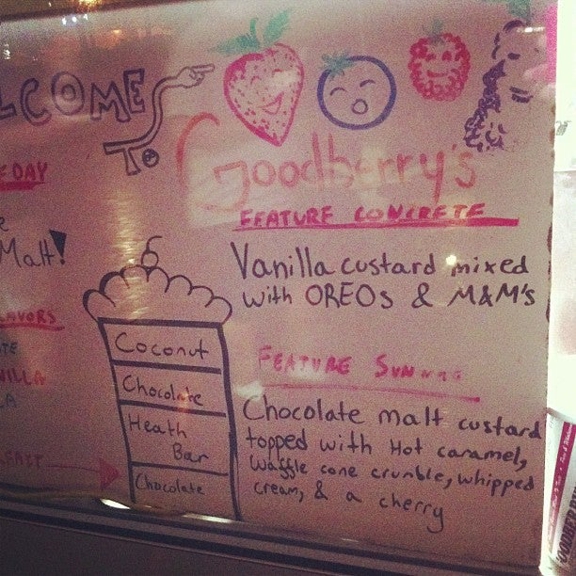 WELCOME
To
Goodberry's
FEATURE CONCRETE
Vanilla custard mixed
with OREOs & M&M's
DAY
Malt!
FEATURE
Chocolate malt custard
topped with Hot caramel,
waffle cone crumble, whipped
cream, & a cherry
Coconut
Chocolate
Heath
Bar
Chocolate